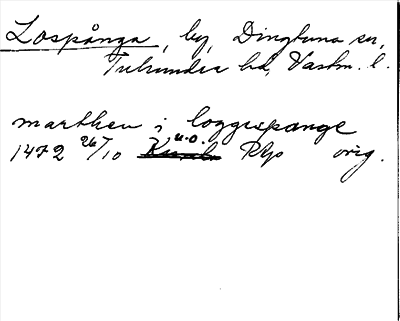 Lospånga, by, Dingtuna sn,
Tuhundra hd, Västm. l.
marthen i loggespange
u.o.
1472 26/10 RAp orig.